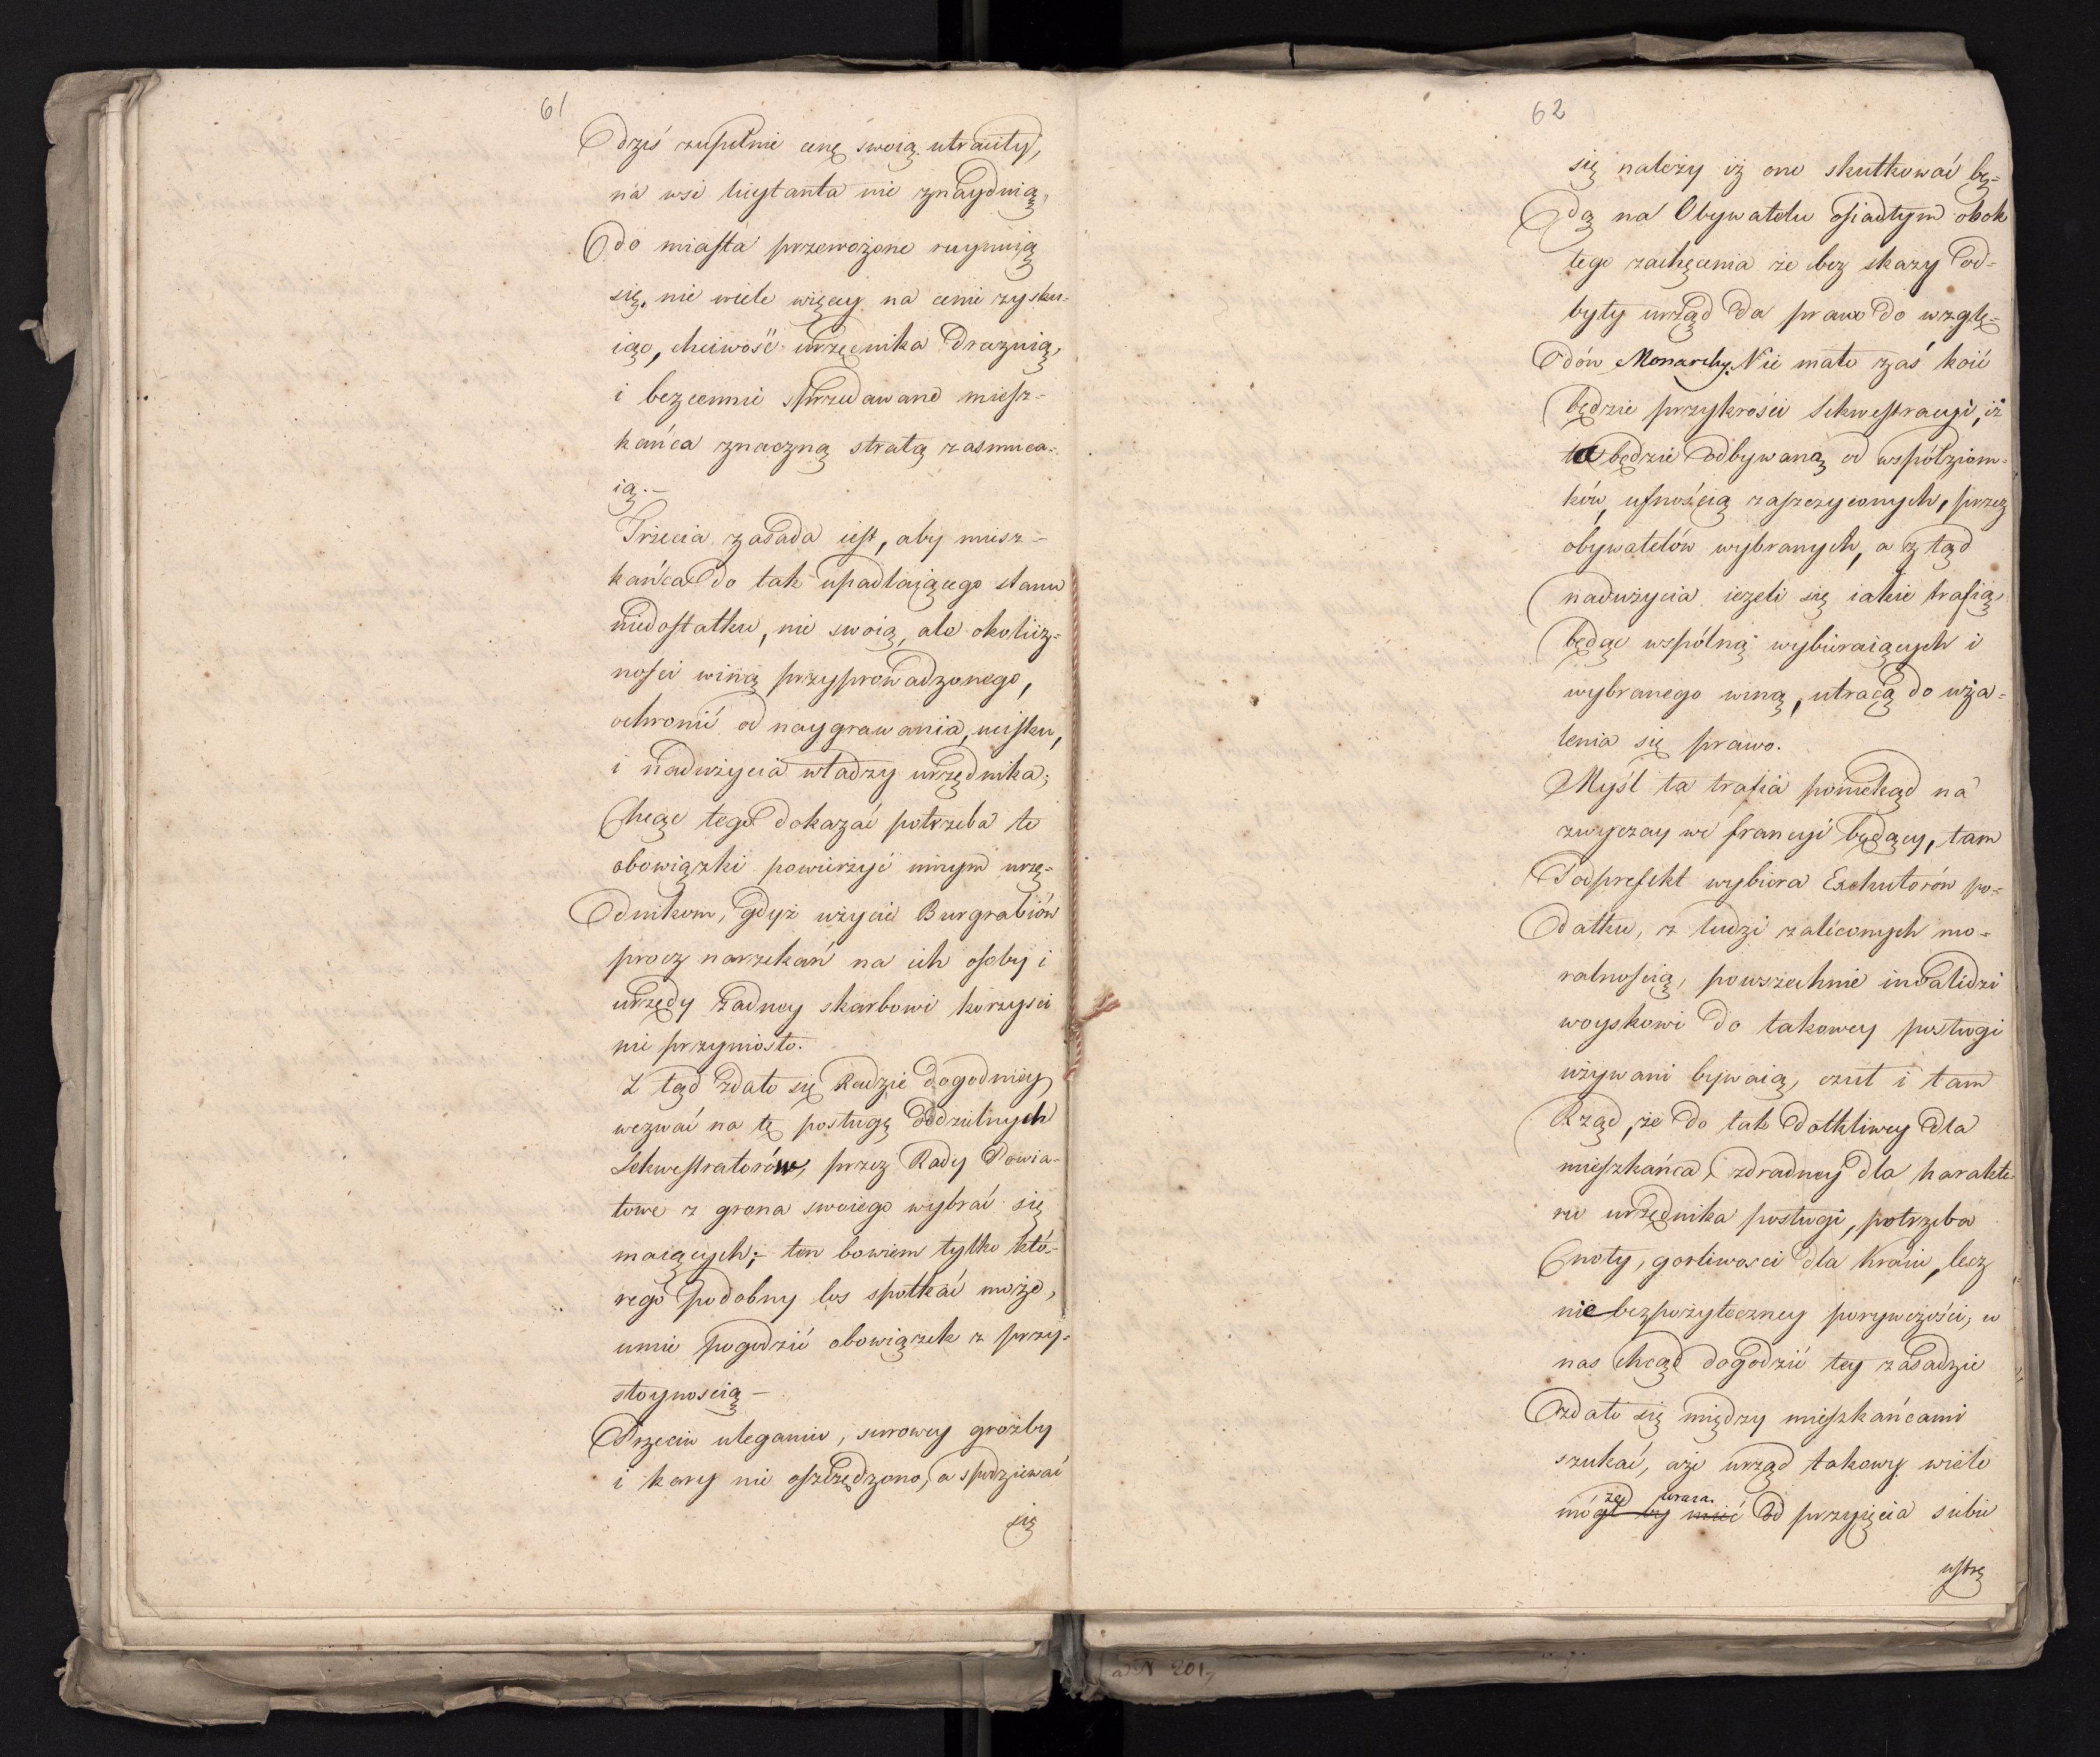 61
dziś zupełnie cenę swoią utraciły,
na wsi licytanta nie znaydnią,
do miasta przewożone ruynuią
się, nie wiele więcey na cenie zysku-
iąc, chciwość urzędnika drażnią,
i bezcennie sprzedawane miesz-
kańca znaczną stratą zasmuca-
ią.—
Trzecia zasada iest, aby miesz-
kańca do tak upadlaiącego stanu
niedostatku, nie swoią, ale okolicz-
ności winą przyprowadzonego,
ochronić od naygrawania, ucisku,
i nadużycia władzy urzędnika;
Chcąc tego dokazać potrzeba te
obowiązki powierzyć innym urzę-
dnikom, gdyż użycie Burgrabiów
procz narzekań na ich osoby i
urzędy żadney skarbowi korzysci
nie przyniosło.
Z tąd zdało się Radzie dogodniey
wezwać na tę posługę oddzielnych
Sekwestratorów, przez Rady Powia-
towe z grona swoiego wybrać się
maiących;— ten bowiem tylko któ-
rego podobny los spotkać może,
umie pogodzić obowiązek z przy-
stoynoscią —
Przeciw uleganiu, surowey groźby
i kary nie oszczędzono, a spodziewać
się
62
się należy iż one skutkować bę-
dą na Obywatelu osiadłym obok
tego zachęcenia że bez skazy od-
byty urząd da prawo do wzglę-
dów Monarchy. Nie mało zaś koić
będzie przykrości Sekwestracyi, iż
ta będzie odbywaną od współziom-
ków, ufnością zaszczyconych, przez
obywatelów wybranych, a z tąd
nadużycia ieżeli się iakie trafią,
będąc wspólną wybieraiących i
wybranego winą, utracą do uża-
lenia się prawo.
Myśl ta trafia poniekąd na
zwyczay we francyi będący, tam
Podprefekt wybiera Exekutorów po-
datku, z ludzi zaleconych mo-
ralnością, powszechnie inwalidzi
woyskowi do takowey posługi
używani bywaią, czuł i tam
Rząd, że do tak dotkliwey dla
mieszkańca, i zdradney dla harakte-
ru urzędnika posługi, potrzeba
Cnoty, gorliwosci dla Kraiu, lecz
nie bezpożyteczney porywczości; u
nas chcąc dogodzić tey zasadzie
zdało się między mieszkańcami
szukać, aże urząd takowy wiele
mógł by mieć od przyięcia siebie
wstrę